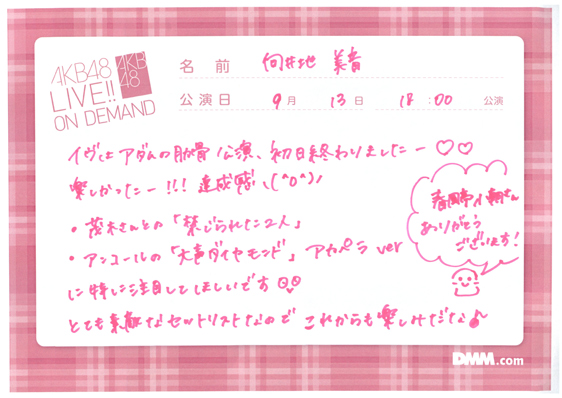 AKB48
LIVE!!
ON DEMAND
AKB
48
名前 向井地 美音
公演日 9月 13日 18:00 公演
イヴはアダムの肋骨公演、初日終わりましたー♡♡
楽しかったー!!! 達成感\(^o^)/
・茂木さんとの「禁じられた2人」
・アンコールの「大声ダイヤモンド」アカペラ ver
に特に注目してほしいです
とても素敵なセットリストなので これからも楽しみだな♪
春風亭小朝さん
ありがとう
ございます!
DMM.com